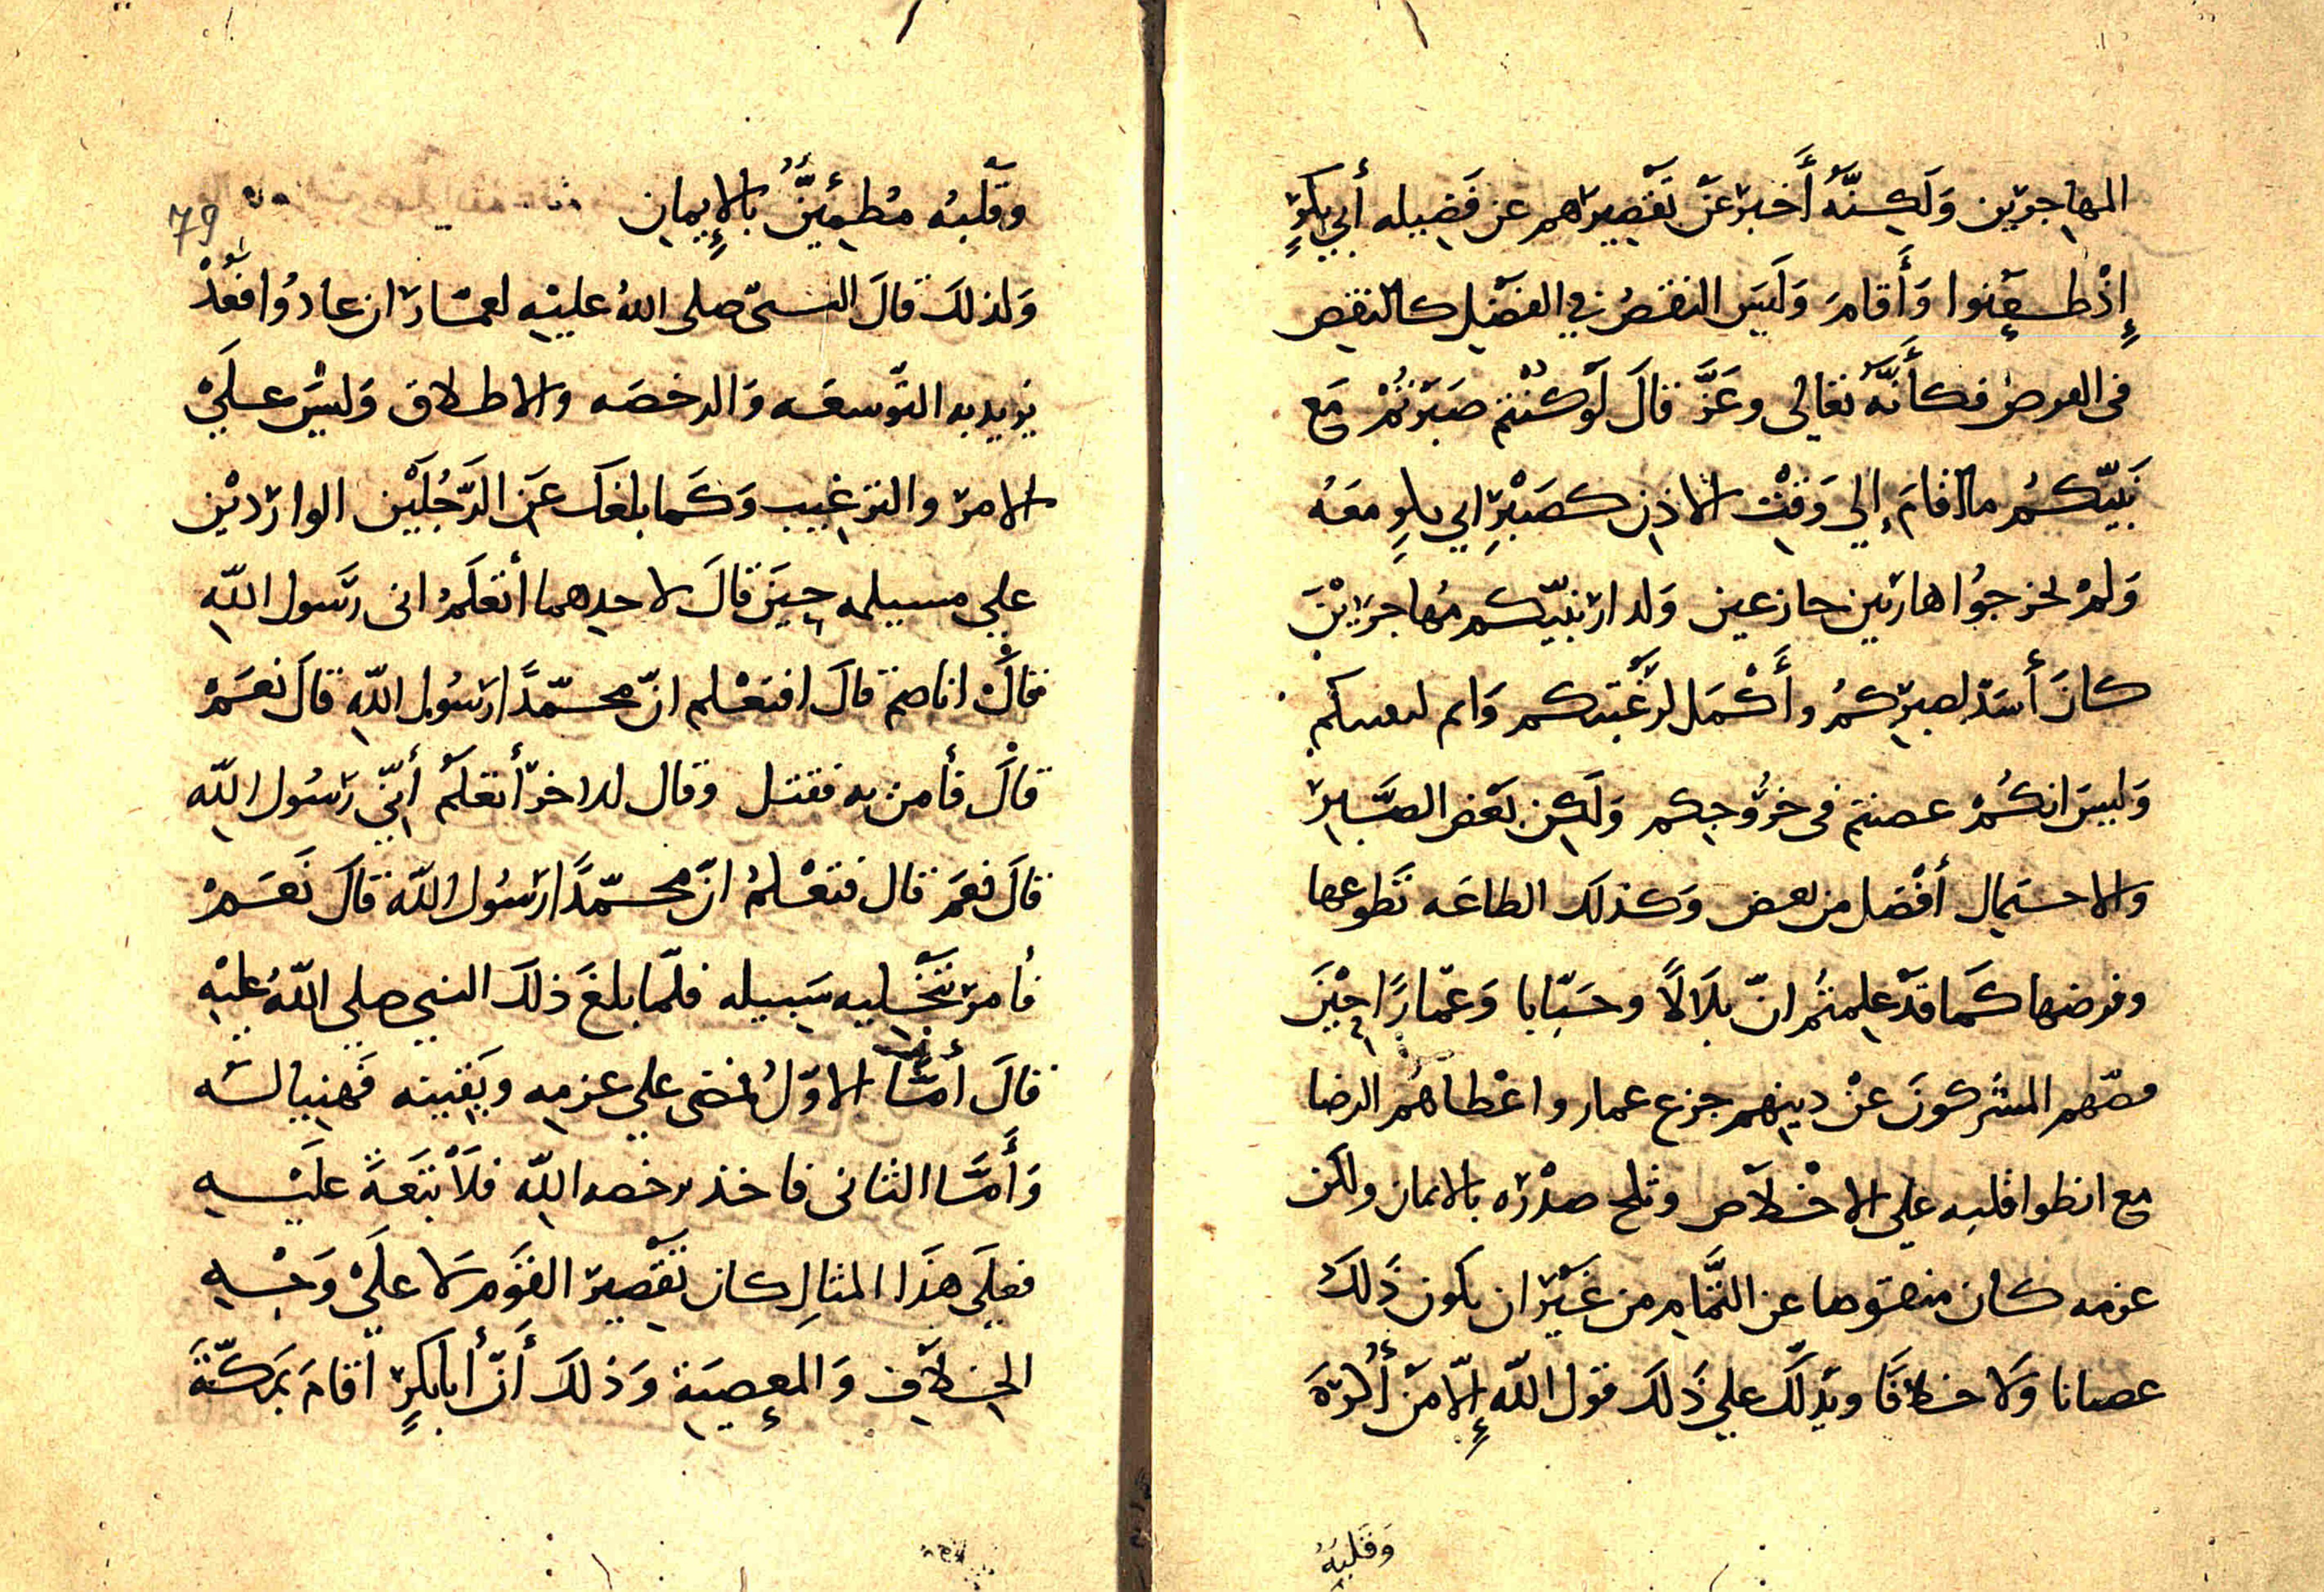 المهاجرين وَلَكِنَّهُ أَخبرَ عَنْ تَقْصِيرِهم عن فَضِيله أبي بكرٍ
إِذْ ظعنوا وَأَقامَ وَلَيسَ النقصُ في الفضْلِ كالنقصِ
فى الفرض فكأَنَّهُ تعَالى وعَزَّ قالَ لَوْ كُنْتم صَبَرْتُمْ مَع
نَبيّكمُ ما اقامَ إلي وَقْت الاذن كصَبْرِ ابي بكرٍ مَعَه
وَلمْ تخرجُوا هاربين جازعين وَلدار نبيّكم مُهاجرِيْنَ
كانَ أشدّ لصبرِكمُ وأَكْمَل لرغْبتكم
وَليسَ انكُمْ عصيتم فى خرُوجكم وَلَكِن بَعْض الصَّبرِ
والاحتمال أفْضل من بعض وَكذلَك الطاعَه تَطوعها
وفرضها كَما قَدْ عِلمتُمْ انّ بلَالاً وخَبّابا وَعَمّارًا حِيْنَ
فتنهم المشركونَ عنْ دينهم جزع عمار واعْطاهُم الرضا
مع انطوا قلبه علي الاخْلاص وثلج صدْره بالايمان ولكن
عزمه كان منقوصا عن التَّمام من غَيْرِ ان يكون ذَلكَ
عصيانا وَلا خلافًا ويَدلّكَ علي ذَلكَ قول اللّه إِلّا مَنْ أُكْرِهَ
وَقَلبهُ
79
وقَلْبهُ مُطمِئِنٌّ بالإِيمان
وَلذلكَ قالَ النبىّ صلى اللهُ عليْهِ لعمّار ان عادُوا فعُدْ
يريد به التّوسعَه وَالرخصَه والاطلاق وَليْسَ علَيْ
الامر والترغيب وَكَما بلغكَ عَن الرّجُلَيْن الوارديْن
علي مسيلمه حِينَ قالَ لاحدهما أتعْلَمُ انى رسَول اللّه
فقالَ انا اصم قالَ افتعْلم انّ محمّدًا رسُول اللّهِ قالَ نعَمْ
قالَ فأمر به فقتل وقال للاخر أتعْلَمْ أَنِّي رَسُول اللّه
قالَ نعَم قال فتعْلمُ انّ محمّدًا رسُول اللّه قالَ نَعَمْ
فأمرَ بتَخْليه سَبيله فلمّا بلغَ ذلكَ النبي صلي اللهُ عليْهِ
قالَ أمّا الاوّلُ فمضى علي عزمِه ويَقينه فَهنيا له
وَأَمّا الثانى فاخذ برخصه اللّه فلَا تَبَعَةَ عليْهِ
فعلَي هذَا المثالِ كان تَقْصِير القَوْم لَا علَيْ وَجْهِ
الخلَافِ وَالمعصِيَة وَذلكَ أَنّ أَبا بكرٍ أقامَ بمَكّةَ